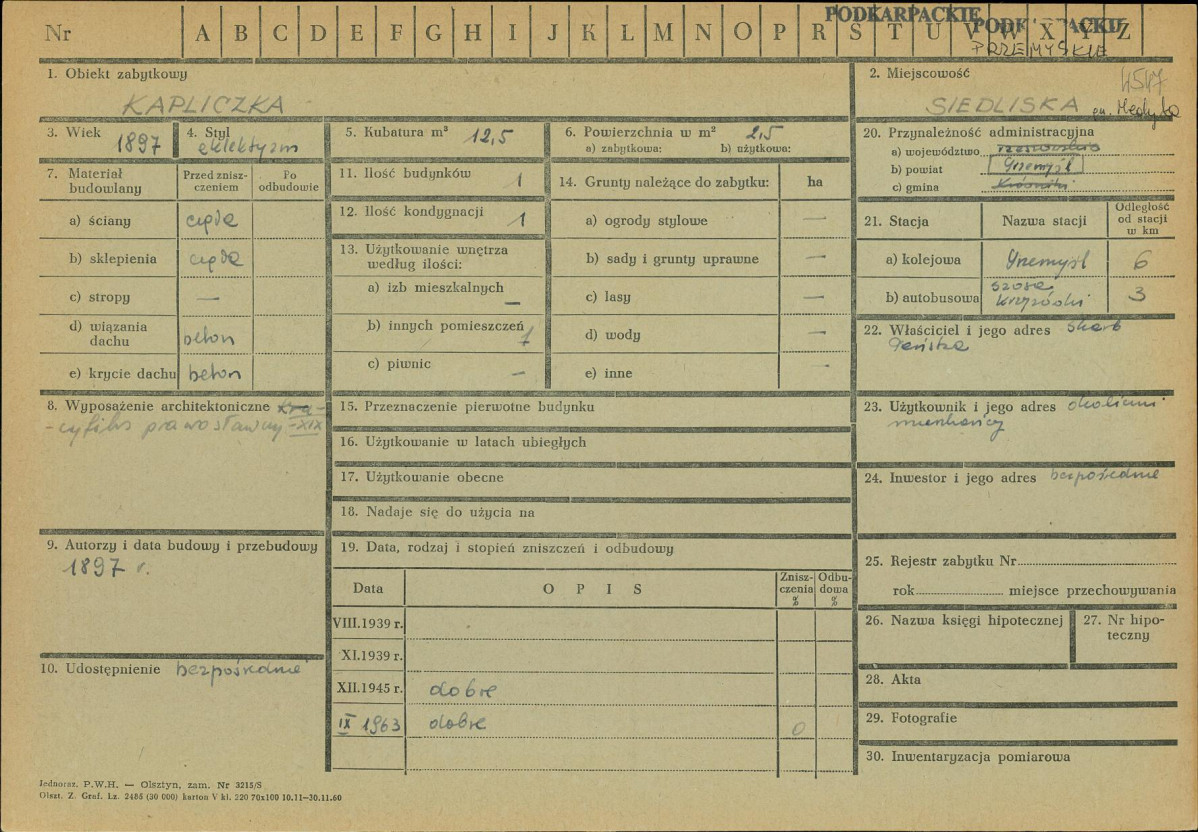 Nr A B C D E F G H I J K L M N O P R S T U V W X Y Z
PODKARPACKIE
PRZEMYSKIE
1. Obiekt zabytkowy
KAPLICZKA
2. Miejscowość 4547
SIEDLISKA gm. Medyka
3. Wiek 1897
4. Styl eklektyzm
5. Kubatura m³ 12,5
6. Powierzchnia w m² 2,5
a) zabytkowa: b) użytkowa:
7. Materiał budowlany
Przed zniszczeniem
Po odbudowie
a) ściany cegła
b) sklepienia cegła
c) stropy —
d) wiązania dachu beton
e) krycie dachu beton
8. Wyposażenie architektoniczne kru-
-cyfiks prawosławny -XIX
9. Autorzy i data budowy i przebudowy
1897 r.
10. Udostępnienie bezpośrednie
11. Ilość budynków 1
12. Ilość kondygnacji 1
13. Użytkowanie wnętrza
według ilości:
a) izb mieszkalnych —
b) innych pomieszczeń 1
c) piwnic —
14. Grunty należące do zabytku: ha
a) ogrody stylowe —
b) sady i grunty uprawne —
c) lasy —
d) wody —
e) inne —
15. Przeznaczenie pierwotne budynku
16. Użytkowanie w latach ubiegłych
17. Użytkowanie obecne
18. Nadaje się do użycia na
19. Data, rodzaj i stopień zniszczeń i odbudowy
Data O P I S Zniszczenia % Odbudowa %
VIII.1939 r.
XI.1939 r.
XII.1945 r. dobre
IX 1963 dobre 0
20. Przynależność administracyjna
a) województwo rzeszowskie
b) powiat Przemyśl
c) gmina
21. Stacja Nazwa stacji Odległość od stacji w km
a) kolejowa Przemyśl 6
b) autobusowa szosa 3
22. Właściciel i jego adres Skarb
Państwa
23. Użytkownik i jego adres okoliczni
mieszkańcy
24. Inwestor i jego adres bezpośrednie
25. Rejestr zabytku Nr
rok miejsce przechowywania
26. Nazwa księgi hipotecznej
27. Nr hipo-
teczny
28. Akta
29. Fotografie
30. Inwentaryzacja pomiarowa
Jednoraz. P.W.H. — Olsztyn, zam. Nr 3215/S
Olszt. Z. Graf. Lz. 2485 (30 000) karton V kl. 220 70x100 10.11—30.11.60